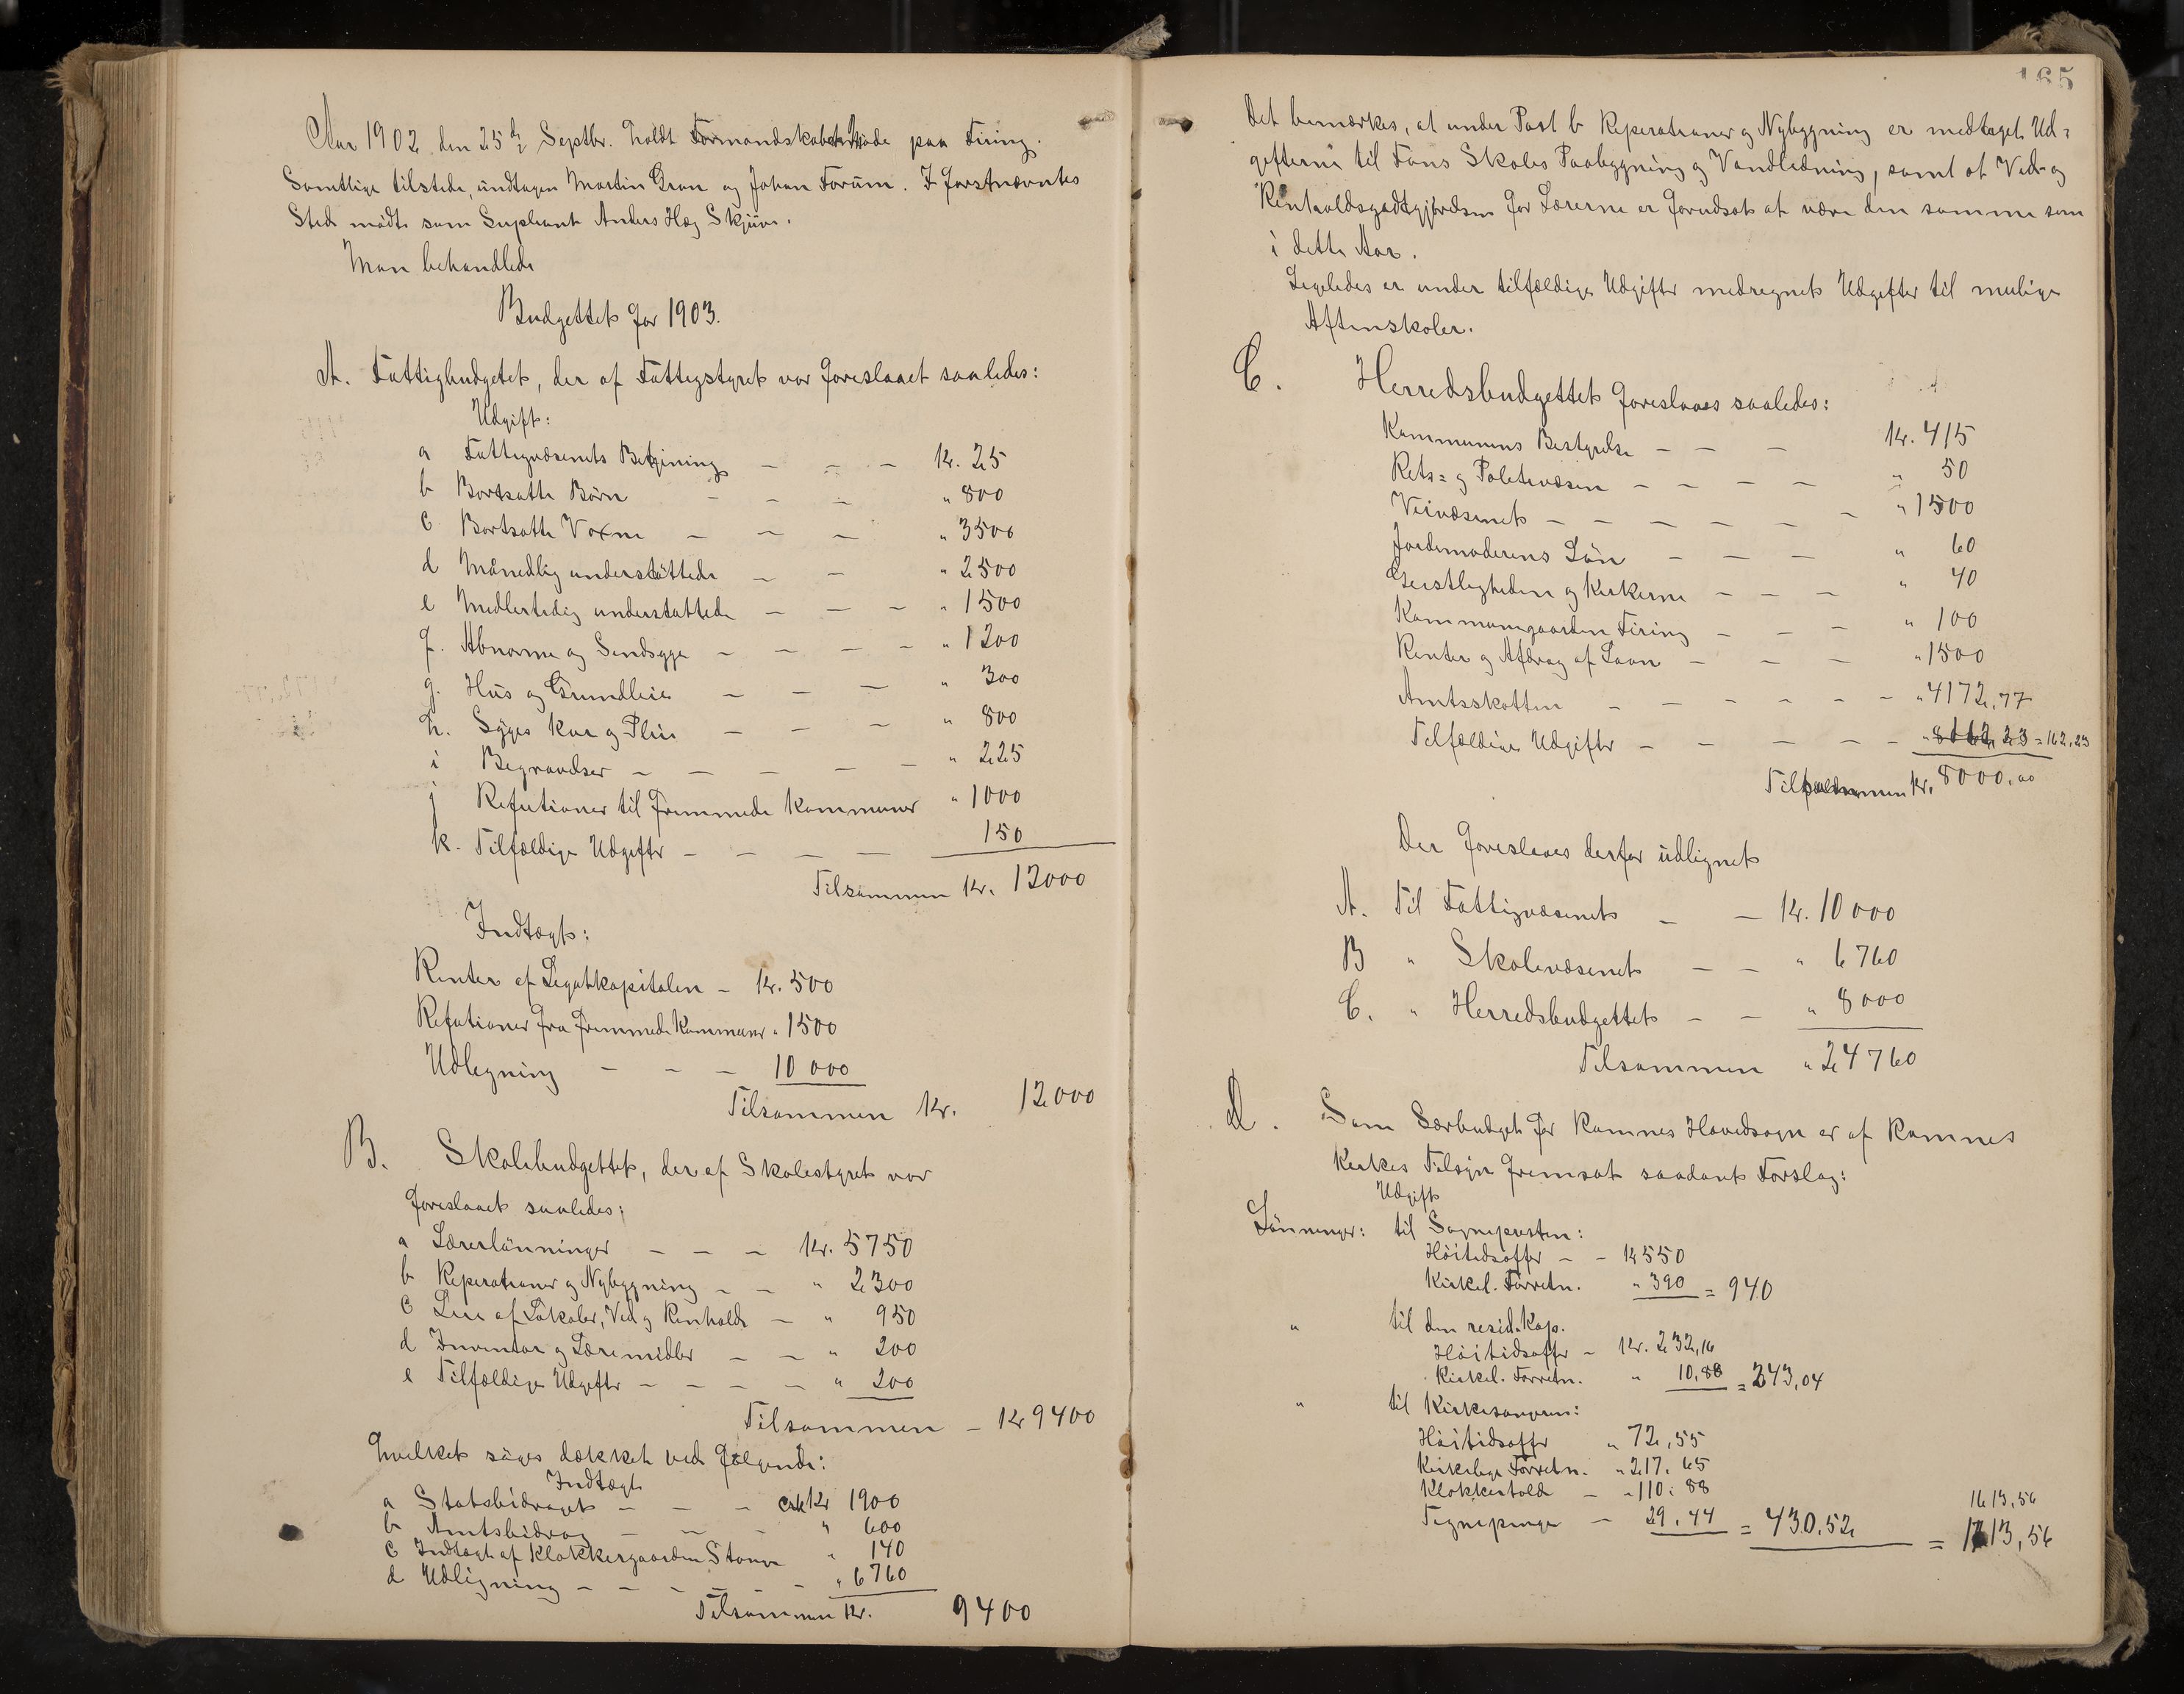 Aar 1902 den 25de Septbr. holdt Formandskabet Møde paa Firing.
Samtlige tilstede, undtagen Martin Gran og Johan Forum. I Førstnævntes
Sted mødte som Supleant Anders Hæg Skjüve.
Man behandlede
Budgettet for 1903.
A. Fattigbudgetet, der af Fattigstyret var foreslaaet saaledes:
Udgift:
a Fattigvæsenets Betjening — — — Kr. 25
b Bortsatte Börn — — — " 800
c Bortsatte Voxne — — — " 3500
d Månedlig understöttede — — " 2500
e Medlertidig understøttede — — — " 1500
f. Abnorme og Sindsyge — — — — " 1200
g. Hus og Grundleie — — — " 300
h. Syges Kur og Pleie — — — " 800
i Begravelser — — — — — " 225
j Refutioner til fremmede Kommuner " 1000
k. Tilfældige Udgifter — — — — 150
Tilsammen Kr. 12000
Indtægt:
Renter af Legatkapitalen — Kr. 500
Refutioner fra fremmede Kommuner " 1500
Udligning — — — 10 000
Tilsammen Kr. 12000
B. Skolebudgettet, der af Skolestyret var
foreslaaet saaledes;
a Lærerlönninger — — — Kr. 5750
b Reperationer og Nybygning — — " 2300
c Leie af Lokaler, Ved og Renhold — " 950
d Inventar og Læremidler — — " 200
e Tilfældige Udgifter — — — — " 200
Tilsammen — Kr 9400
hvilket söges dækket ved følgende:
Indtægt
a Statsbidraget — — — Kr 1900
b Amtsbidrag — — — " 600
c Indtægt af Klokkergaarden Stange " 140
d Udligning — — — — — " 6760
Tilsammen Kr. 9400
165
Det bemærkes, at under Post b Reperationer og Nybygning er medtaget Ud=
gifterne til Fons Skoles Paabygning og Vandledning, samt at Ved- og
Renholdsgodtgjørelsen for Lærerne er forudsat at være den samme som
i dette Aar.
Ligeledes er under tilfældige Udgifter medregnet Udgifter til mulige
Aftenskoler.
C. Herredsbudgettet foreslaaes saaledes:
Kommunens Bestyrelse — — — Kr. 415
Rets= og Politivæsen — — — — " 50
Veivæsenet — — — — — — " 1500
Jordemoderens Lön — — — " 60
Geistligheden og Kirkerne — — — " 40
Kommunegaarden Firing — — — " 100
Renter og Afdrag af Laan — — — " 1500
Amtsskatten — — — — — " 4172,77
Tilfældige Udgifter — — — — — " 162,23 = 162,23
Tilsammen Kr. 8000,00
Der foreslaaes derfor üdlignet
A. Til Fattigvæsenet — — Kr. 10 000
B " Skolevæsenet — — " 6760
C. " Herredsbudgettet — — " 8000
Tilsammen " 24760
d. Som Særbudget for Ramnes Hovedsogn er af Ramnes
Kirkes Tilsyn fremsat saadant Forslag:
Udgift
Lönninger: til Sognepresten:
Höitidsoffer — — Kr 550
Kirkel. Forretn. " 390 = 940
" til den resid. Kap.
Höitidsoffer — Kr. 232,16
Kirkel. Forretn. " 10,88 = 243,04
" til Kirkesangeren:
Höitidsoffer " 72,55
Kirkelige Forretn. " 217,65
Klokkertold — " 110,88
Tegnepenge — 29,44 = 430,52 = 1613,56
1613,56